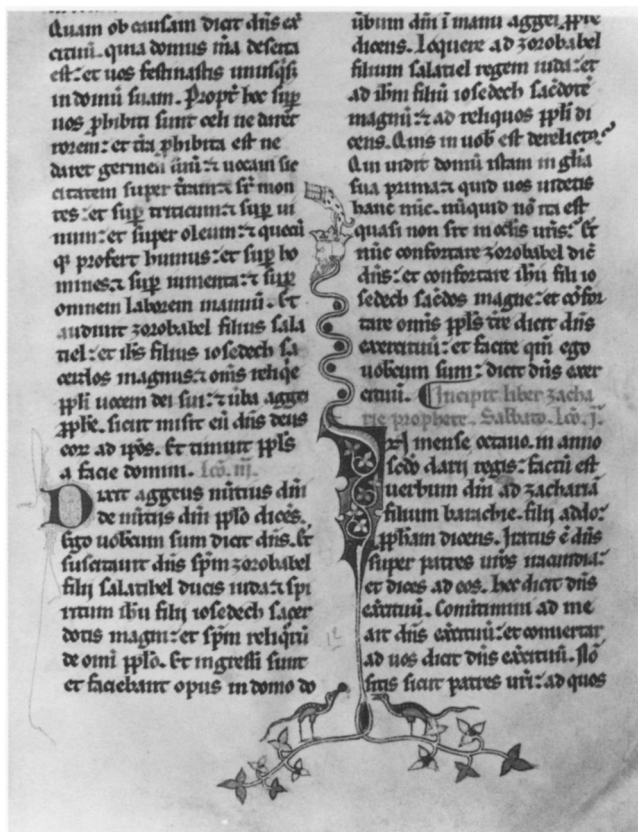 Quam ob causam dicit dns exͨ
cituu. quia domus mͣ deserta
est: et uos festinastis unusqͥsqͥ
in domu suam. Propt hoc sup
uos phibiti sunt celi ne darent
rorem: et tra phibita est ne
daret germen suu: ⁊ uocaui sic
citatem super tram: ⁊ sr mon
tes: et sup triticum: ⁊ sup ui
num: et super oleum: ⁊ quecu
qꝫ profert humus: et sup ho
mines: ⁊ sup iumenta: ⁊ sup
omnem laborem manuu. Et
audiuit zorobabel filius sala
tiel: et ihs filius iosedech sa
cerdos magnus: ⁊ oms reliqͥe
ppli uocem dei sui: ⁊ uba aggei
pphe. sicut misit eu dns deus
eorꝝ ad ipos. Et timuit ppls
a facie domini. Lco. iij.
Dixit aggeus nutius dni
de nutijs dni pplo dices.
Ego uobcum sum dicit dns. Et
suscitauit dns spm zorobabel
filij salatibel ducis iuda: ⁊ spi
ritum ihu filij iosedech sacer
dotis magni: et spm reliqͦru
de omi pplo. Et ingressi sunt
et faciebant opus in domo do
ubum dni i manu aggei pphe
dicens. Loquere ad zorobabel
filium salatiel regem iuda: et
ad ihm filiu iosedech sacdote
magnu: ⁊ ad reliquos ppli di
cens. Quis in uob est derelictͥ.
Qui uidit domu istam in glͥa
sua prima: ⁊ quid uos uidetis
hanc nuc. nuquid no ita est
quasi non sit in oclis uris. Et
nuc confortare zorobabel dic̄
dns: et confortare ihu fili io
sedech sacdos magne: et cofor
tare omis ppls tre dicit dns
exercituu: et facite qm ego
uobcum sum: dicit dns exer
cituu. Incipit liber zacha
rie prophete. Sabbato. Lco. j.
IN mense octauo. in anno
scdo darij regis: factu est
uerbum dni ad zacharia
filium barachie. filij addo:
ppham dicens. Iratus e dns
super patres uros iracundia:
et dices ad eos. hec dicit dns
exercituu. Conuertimini ad me
ait dns exercituu: et conuertar
ad uos dicit dns exercituu. No
sitis sicut patres uri: ad quos